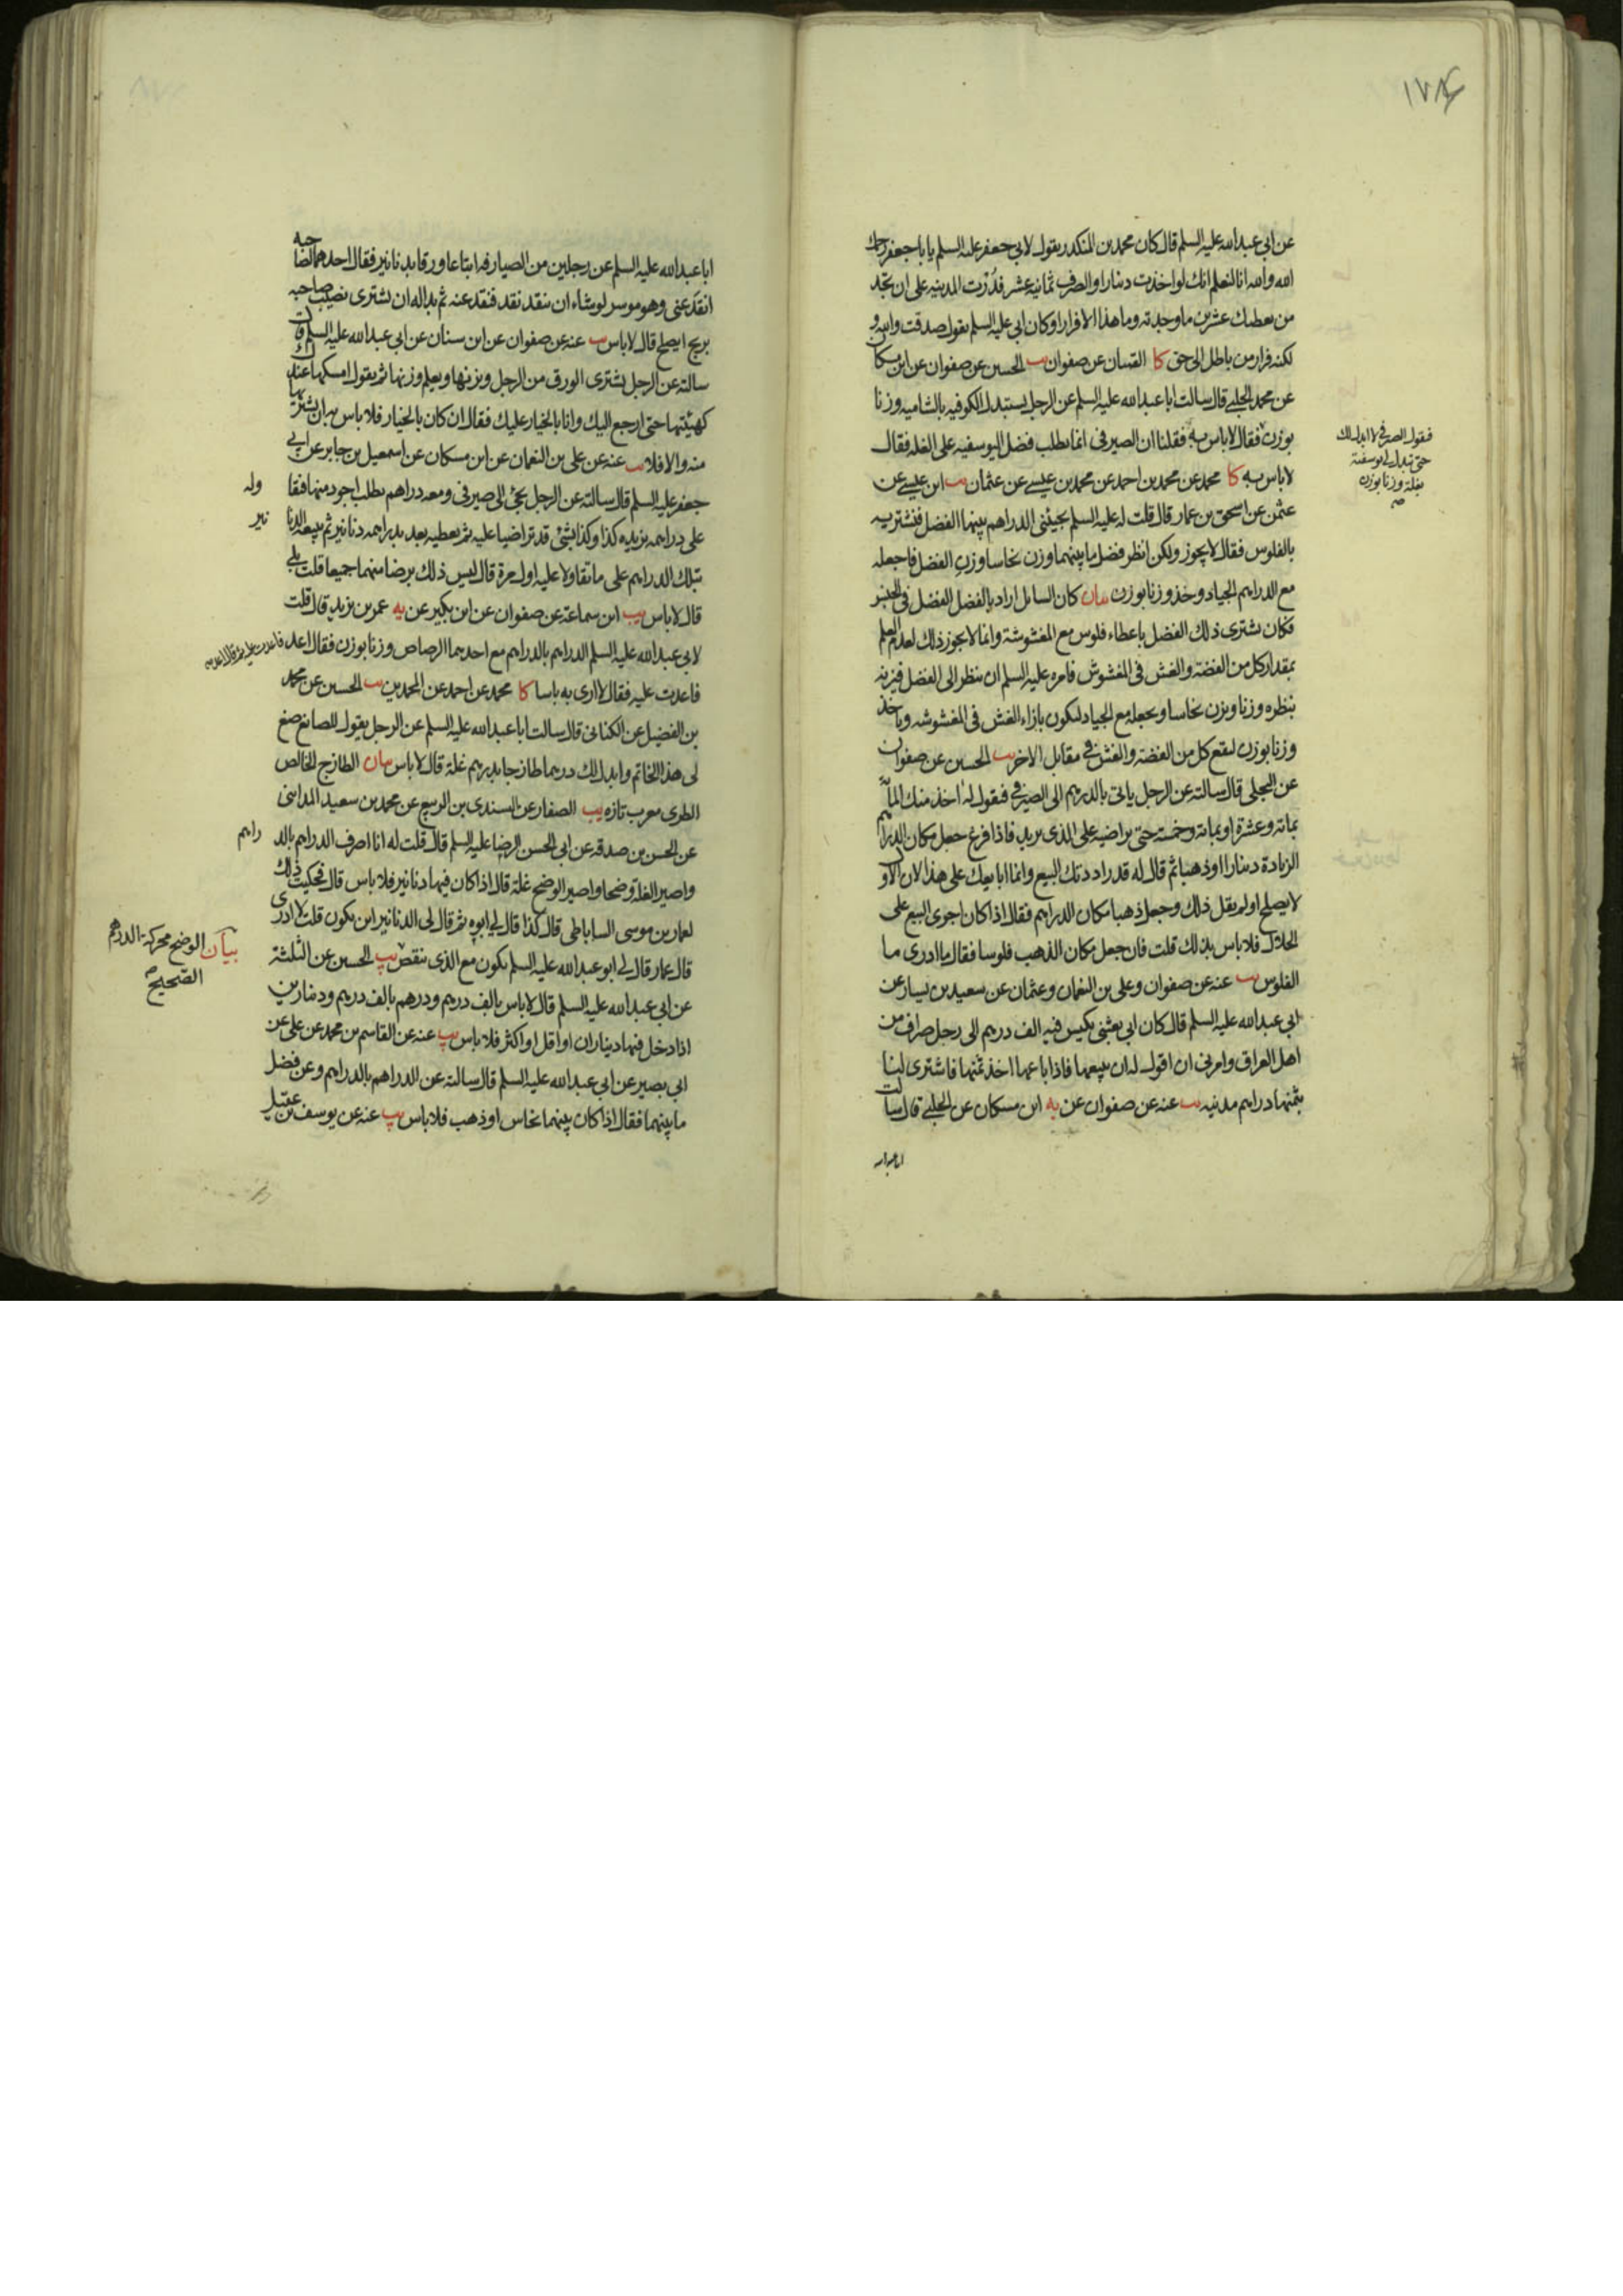 ١٧٨٤
عن ابى عبدالله عليه السلم قال كان محمد بن المنكدر يقول لابى جعفر عليه السلم يا با جعفر رحمك
الله والله انا لنعلم انك لو اخذت دينارا والصرف ثمانية عشر فدُرْت المدينه على ان تجد
من يعطيك عشرين ما وجدته وما هذا الا فرارا وكان ابى عليه السلم يقول صدقت والله و
لكنه فرار من باطل الى حق كا القميان عن صفوان يب الحسين عن صفوان عن ابن مسكان
عن محمد الحلبى قال سالت ابا عبدالله عليه السلم عن الرجل يستبدل الكوفيه بالشاميه وزنا
بوزن فقال لا باس به فقلنا ان الصيرفى انما يطلب فضل اليوسفيه على الغله فقال
فيقول الصيرفى لا ابدل لك
حتى تبدل لى يوسفية
بغلة وزنا بوزن
صح
لا باس به كا محمد عن محمد بن احمد عن محمد بن عيسى عن عثمان يب ابن عيسى عن
عثمن عن اسحق بن عمار قال قلت له عليه السلم يجيئنى الدراهم بينهما الفضل فنشتريه
بالفلوس فقال لا يجوز ولكن انظر فضل ما بينهما وزن نحاسا وزن الفضل فاجعله
مع الدراهم الجياد وخذ وزنا بوزن بيان كان السايل اراد بالفضل الفضل فى الجنس
فكان يشترى ذلك الفضل باعطاء فلوس مع المغشوشة وانما لا يجوز ذلك لعدم العلم
بمقدار كل من الفضة والغش فى المغشوش فامره عليه السلم ان ينظر الى الفضل فيزنه
بنظره وزنا ويزن نحاسا ويجعله مع الجياد ليكون بازاء الغش فى المغشوشه وياخذ
وزنا بوزن ليقع كل من الفضة والغش فى مقابل الاخر يب الحسين عن صفوان
عن البجلى قال سالته عن الرجل ياتى بالدرهم الى الصيرفى فيقول له اخذ منك المأة
بمائة وعشرة او بمائة وخمسة حتى يراضيه على الذى يريد فاذا فرغ جعل مكان الدراهم
الزيادة دينارا او ذهبا ثم قال له قد راددتك البيع وانما ابايعك على هذا لان الاول
لا يصلح او لم يقل ذلك وجعل ذهبا مكان الدراهم فقال اذا كان اجرى البيع على
الحلال فلا باس بذلك قلت فان جعل مكان الذهب فلوسا فقال ما ادرى ما
الفلوس يب عنه عن صفوان وعلى بن النعمان وعثمان عن سعيد بن يسار عن
ابى عبدالله عليه السلم قال كان ابى بعثنى بكيس فيه الف درهم الى رجل صراف من
اهل العراق وامرنى ان اقول له ان يبيعها فاذا باعها اخذ ثمنها فاشترى لنا
بثمنها دراهم مدنيه يب عنه عن صفوان عن يه ابن مسكان عن الحلبى قال سالت
ابا عبدالله
ابا عبدالله عليه السلم عن رجلين من الصيارفه ابتاعا ورقا بدنانير فقال احدهما لصاحبه
انقد عنى وهو موسر لو يشاء ان ينقد نقد فنقد عنه ثم بدا له ان يشترى نصيب صاحبه
بربح ايصلح قال لا باس يب عنه عن صفوان عن ابن سنان عن ابى عبدالله عليه السلم قال
سالته عن الرجل يشترى الورق من الرجل ويزنها ويعلم وزنها ثم يقول امسكها عندك
كهيئتها حتى ارجع اليك وانا بالخيار عليك فقال ان كان بالخيار فلا باس به ان يشتريها
منه والا فلا يب عنه عن على بن النعمان عن ابن مسكان عن اسمعيل بن جابر عن ابى
جعفر عليه السلم قال سالته عن الرجل يجئ الى صيرفى ومعه دراهم يطلب اجود منها فيقا وله
على دراهمه يزيده كذا وكذا بشئ قد تراضيا عليه ثم يعطيه بعد بدراهمه دنانير ثم يبيعه الدنا نير
بتلك الدراهم على ما تقاولا عليه اول مرة قال اليس ذلك برضا منهما جميعا قلت بلى
قال لا باس يب ابن سماعة عن صفوان عن ابن بكير عن يه عمر بن يزيد قال قلت
لابى عبدالله عليه السلم الدراهم بالدراهم مع احدهما الرصاص وزنا بوزن فقال اعد فاعدت عليه ثم قال اعد
فاعدت عليه فقال لا ارى به باسا كا محمد عن احمد عن المحمدين يب الحسين عن محمد
بن الفضيل عن الكنانى قال سالت ابا عبدالله عليه السلم عن الرجل يقول للصائغ صغ
لى هذا الخاتم وابدل لك درهما طازجا بدرهم غلة قال لا باس بيان الطازج الخالص
الطرى معرب تازه يب الصفار عن السندى بن الربيع عن محمد بن سعيد المداينى
عن الحسن بن صدقه عن ابى الحسن الرضا عليه السلم قال قلت له انا اصرف الدراهم بالد راهم
واصير الغلة وضحا واصير الوضح غلة قال اذا كان فيها دنانير فلا باس قال فحكيت ذلك
لعمار بن موسى الساباطى قال كذا قال لى ابوه ثم قال لى الدنانير اين يكون قلت لا ادرى
بيان الوضح محركة الدرهم
الصحيح
قال عمار قال لى ابو عبدالله عليه السلم يكون مع الذى ينقص يب الحسين عن الثلثة
عن ابى عبدالله عليه السلم قال لا باس بالف درهم ودرهم بالف درهم ودينارين
اذا دخل فيها ديناران او اقل او اكثر فلا باس يب عنه عن القاسم بن محمد عن على عن
ابى بصير عن ابى عبدالله عليه السلم قال سالته عن الدراهم بالدراهم وعن فضل
ما بينهما فقال اذا كان بينهما نحاس او ذهب فلا باس يب عنه عن يوسف بن عقيل